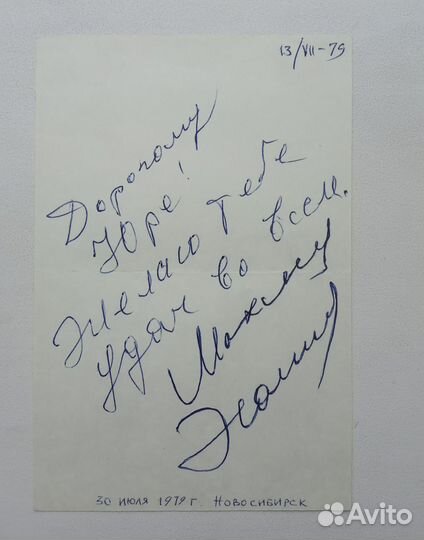 13/VII-79
Дорогому
Юре!
Желаю тебе
удач во всем.
30 ИЮЛЯ 1979 Г. НОВОСИБИРСК
Avito